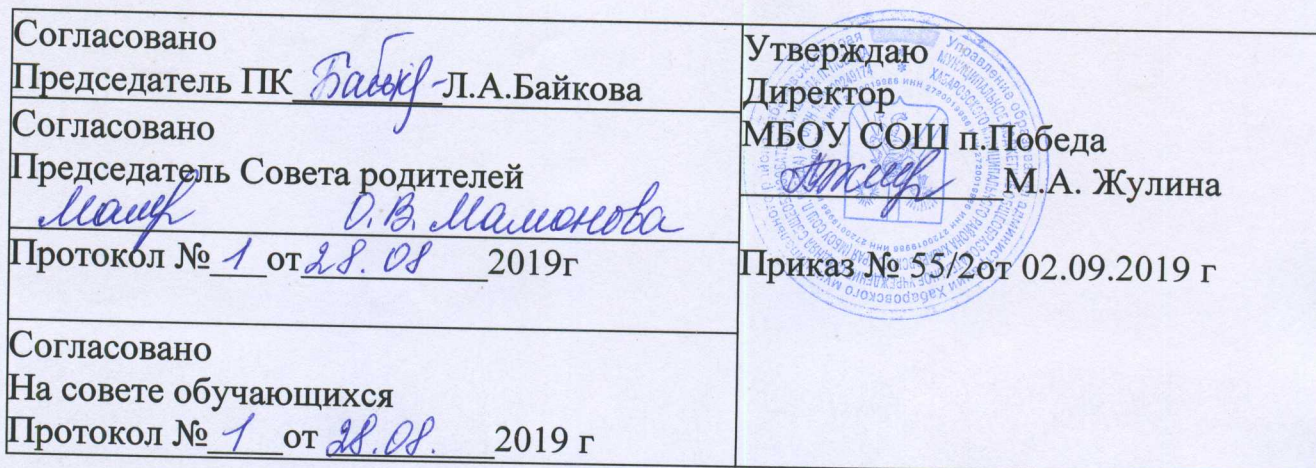 Согласовано
Председатель ПК Л.А.Байкова
Согласовано
Председатель Совета родителей
О.В. Мамонова
Протокол № 1 от 28.08 2019г
Согласовано
На совете обучающихся
Протокол № 1 от 28.08. 2019 г
Утверждаю
Директор
МБОУ СОШ п.Победа
М.А. Жулина
Приказ № 55/2от 02.09.2019 г